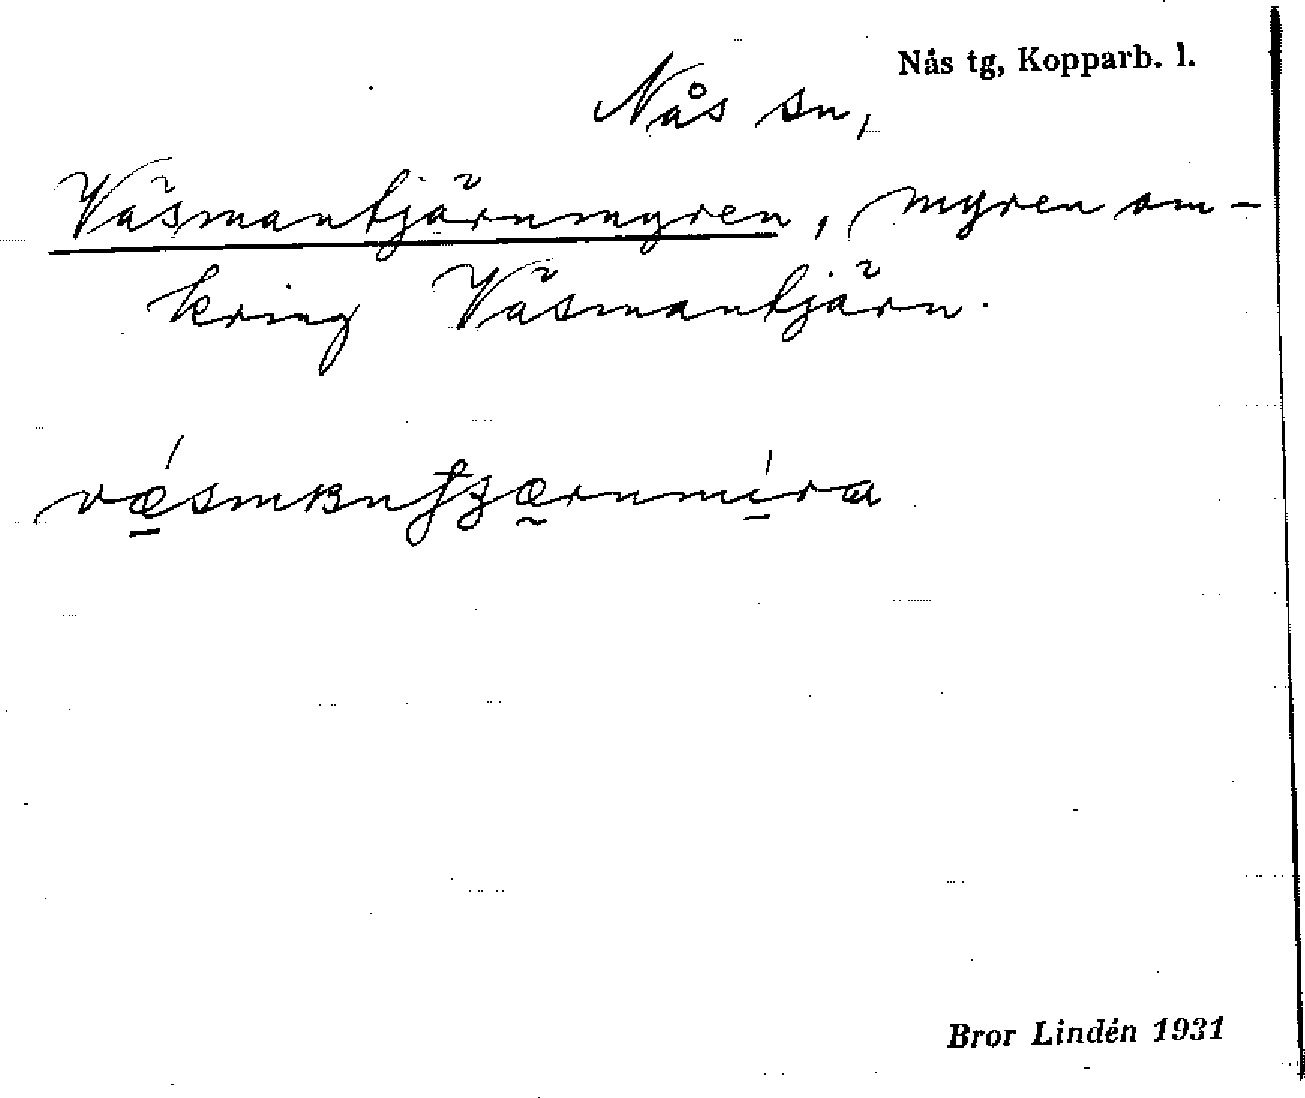 Nås tg, Kopparb. l.
Nås sn,
Väsmantjärnmyren, myren om-
kring Väsmantjärn.
Bror Lindén 1931